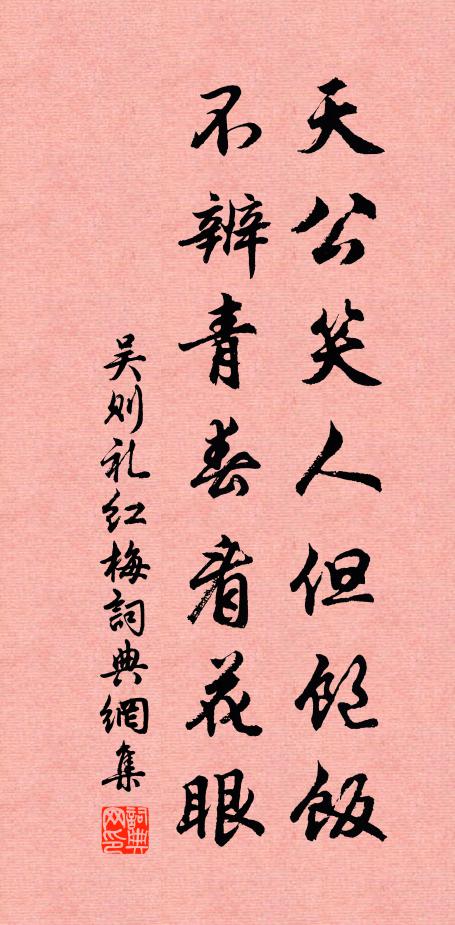 天公笑人但飽飯
不辦青春看花眼
吴则礼红梅詞典網集
詞典网印